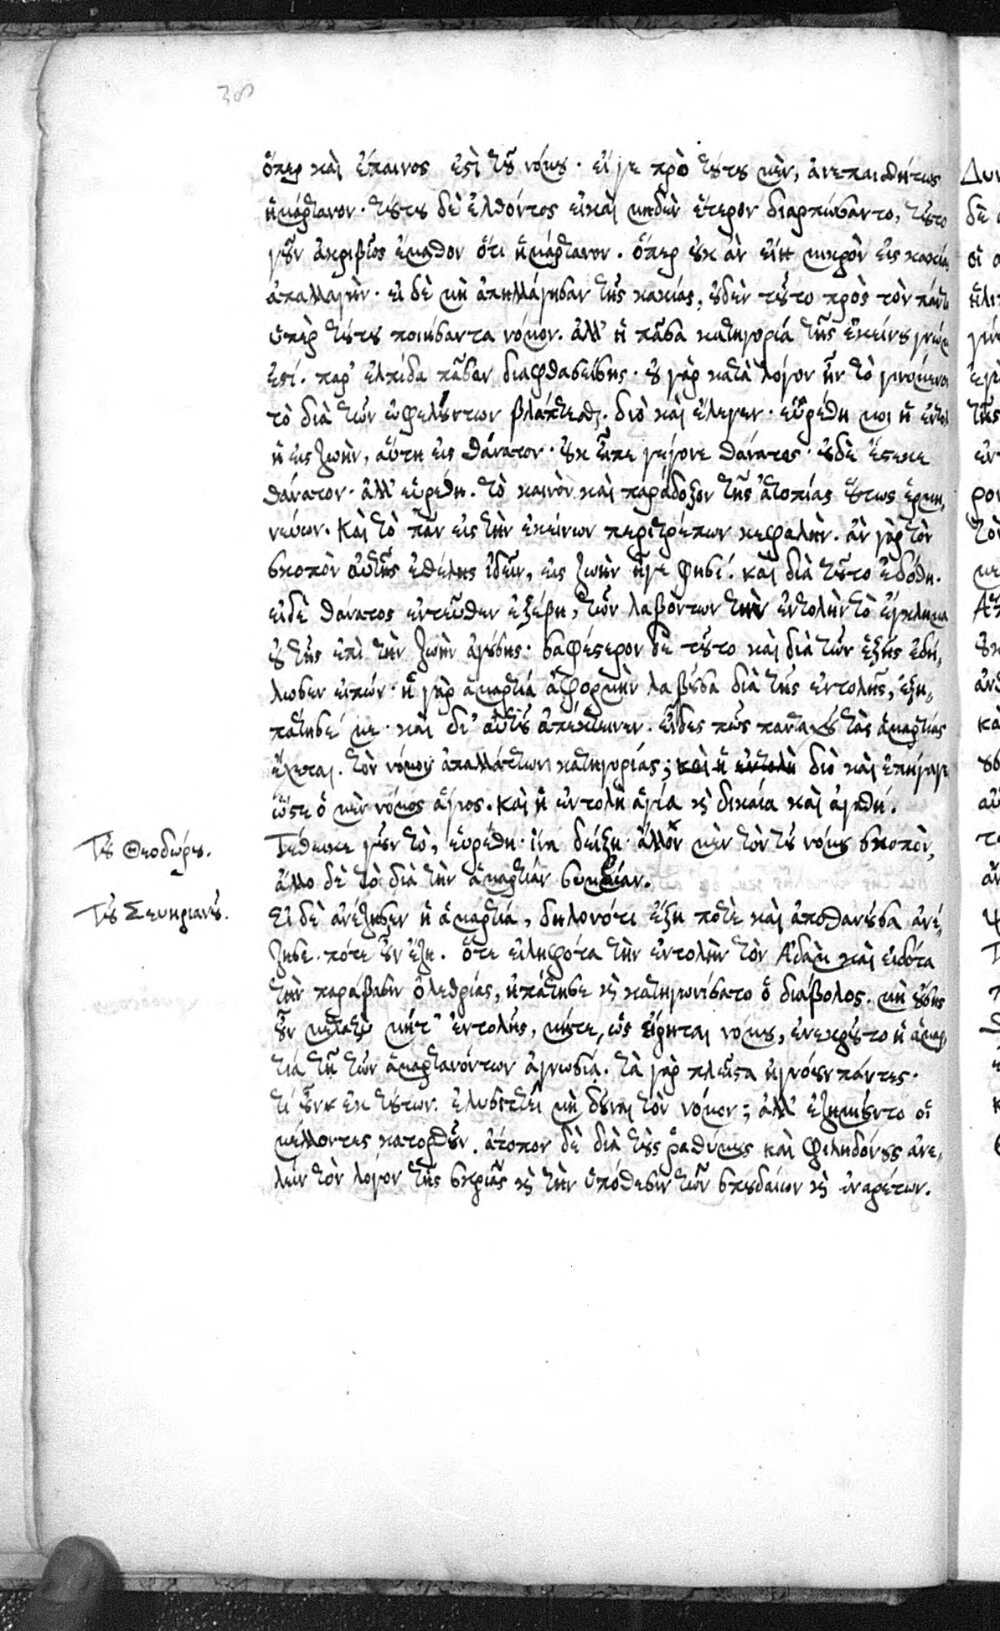 ὅπερ καὶ ἔπαινος ἐστὶ τοῦ νόμου· εἴγε πρὸ τούτου μὲν, ἀνεπαισθήτως
ἡμάρτανον· τούτου δὲ ἐλθόντος εἰ καὶ μηδὲν ἕτερον διεπράξαντο, τοῦτο
γοῦν ἀκριβῶς ἔμαθον ὅτι ἡμάρτανον. ὅπερ οὐκ ἂν εἴη μικρὸν εἰς κακίας
ἀπαλλαγὴν· εἰ δὲ μὴ ἀπηλλάγησαν τῆς κακίας, οὐδὲν τοῦτο πρὸς τὸν πάντα
ὑπὲρ τούτου ποιήσαντα νόμον. ἀλλ' ἡ πᾶσα κατηγορία τῆς ἐκείνου γνώμης
ἐστί. παρ' ἐλπίδα πᾶσαν διαφθαρείσης· οὐ γὰρ κατὰ λόγον ἦν τὸ γινόμενον
τὸ διὰ τῶν ὠφελούντων βλάπτεσθαι. διὸ καὶ ἔλεγεν· εὑρέθη μοι ἡ ἐντολὴ
ἡ εἰς ζωὴν, αὕτη εἰς θάνατον· οὐκ εἶπε γέγονε θάνατος· οὐδὲ ἔτεκε
θάνατον· ἀλλ' εὑρέθη. τὸ καινὸν καὶ παράδοξον τῆς ἀτοπίας οὕτως ἑρμη,
νεύων. καὶ τὸ πᾶν εἰς τὴν ἐκείνων περιτρέπων κεφαλὴν. ἂν γὰρ τὸν
σκοπὸν αὐτῆς ἐθέλῃς ἰδεῖν, εἰς ζωὴν ἦγε φησί. καὶ διὰ τοῦτο ἐδόθη.
εἰ δὲ θάνατος ἐντεῦθεν ἐξέβη, τῶν λαβόντων τὴν ἐντολὴν τὸ ἔγκλημα
οὐ τῆς ἐπὶ τὴν ζωὴν ἀγούσης· σαφέστερον δὲ τοῦτο καὶ διὰ τῶν ἑξῆς ἐδή,
λωσεν εἰπών· ἡ γὰρ ἁμαρτία ἀφορμὴν λαβοῦσα διὰ τῆς ἐντολῆς, ἐξη,
πάτησέ με· καὶ δι' αὐτῆς ἀπέκτεινεν. εἶδες πῶς πανταχοῦ τῆς ἁμαρτίας
ἔχεται. τὸν νόμον ἀπαλλάττων κατηγορίας; καὶ ἡ ἐντολὴ διὸ καὶ ἐπήγαγε
ὥστε ὁ μὲν νόμος ἅγιος. καὶ ἡ ἐντολὴ ἁγία καὶ δικαία καὶ ἀγαθή.
Τοῦ Θεοδώρου.
Τέθεικε γοῦν τὸ, εὑρέθη· ἵνα δείξῃ ἄλλον μὲν τὸν τοῦ νόμου σκοπὸν,
ἄλλο δὲ τὸ διὰ τὴν ἁμαρτίαν
Τοῦ Σευηριανοῦ.
Εἰ δὲ ἀνέζησεν ἡ ἁμαρτία, δηλονότι ἔζη ποτὲ καὶ ἀποθανοῦσα ἀνέ,
ζησε. πότε οὖν ἔζη. ὅτε εἰληφότα τὴν ἐντολὴν τὸν Ἀδὰμ καὶ εἰδότα
τὴν παράβασιν ὀλεθρίας, ἠπάτησε καὶ κατηγωνίσατο ὁ διάβολος. μὴ οὔσης
οὖν μεταξὺ μήτ' ἐντολῆς, μήτε, ὡς εἴρηται νόμου, ἐνεκροῦτο ἡ ἁμαρ,
τία τῇ τῶν ἁμαρτανόντων ἀγνωσίᾳ. τὰ γὰρ πλεῖστα ἠγνόουν πάντες·
τί οὖν ἐκ τούτων. ἐλυσιτέλει μὴ δοῦναι τὸν νόμον; ἀλλ' ἐζημιοῦντο οἱ
μέλλοντες κατορθοῦν. ἄτοπον δὲ διὰ τοὺς ῥαθύμους καὶ φιληδόνους ἀνε,
λεῖν τὸν λόγον τῆς καὶ τὴν ὑπόθεσιν τῶν σπουδαίων καὶ ἐναρέτων.